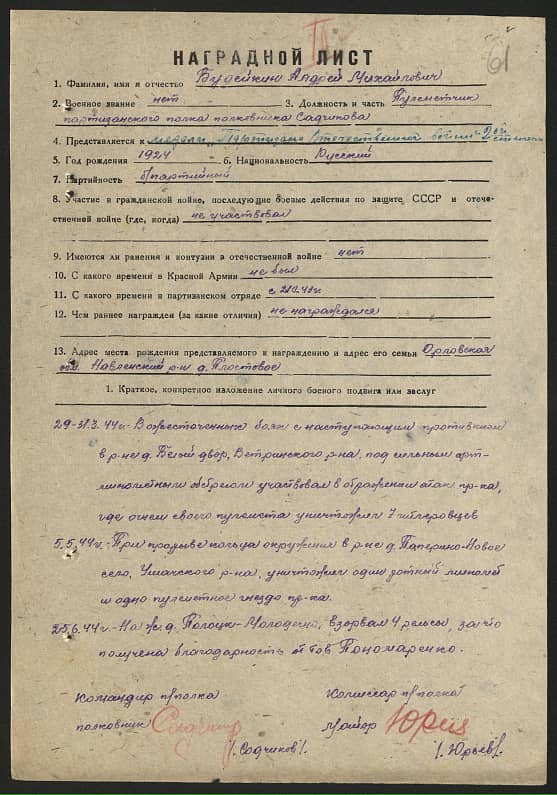 61
НАГРАДНОЙ ЛИСТ
1. Фамилия, имя и отчество Будейкин Андрей Михайлович
2. Военное звание нет 3. Должность и часть Пулеметчик
партизанского полка полковника Садчикова
4. Представляется к медали "Партизану Отечественной войны" 2ой степени
5. Год рождения 1924 6. Национальность Русский
7. Партийность б/партийный
8. Участие в гражданской войне, последующие боевые действия по защите СССР и отече-
ственной войне (где, когда) не участвовал
9. Имеются ли ранения и контузии в отечественной войне нет
10. С какого времени в Красной Армии не был
11. С какого времени в партизанском отряде с
12. Чем раннее награжден (за какие отличия) не награждался
13. Адрес места рождения представляемого к награждению и адрес его семьи Орловская
обл. р-н д.
1. Краткое, конкретное изложение личного боевого подвига или заслуг
29-31.3.44г. В ожесточенных боях с наступающим противником
в р-не д. Белый двор, Ветринского р-на, под сильным арт-
минометным обстрелом участвовал в отражении атак пр-ка,
где огнем своего пулемета уничтожил 7 гитлеровцев
5.5.44г. При прорыве кольца окружения в р-не д. Паперино-Новое
село, Ушачского р-на, уничтожил один ротный миномет
и одно пулеметное гнездо пр-ка.
25.6.44г. На ж.д. Полоцк-Молодечно, взорвал 4 рельсы, за что
получена благодарность от тов Пономаренко.
Командир п/полка Комиссар п/полка
полковник майор Юрьев
/. Садчиков/. /. Юрьев/.